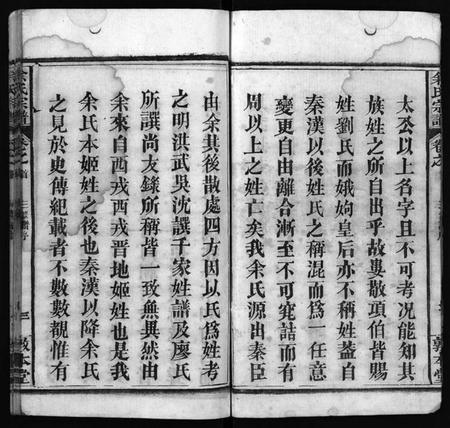 余氏宗譜
卷之
敦本堂
太公以上名字且不可考况能知其
族姓之所自出乎故婁敬項伯皆賜
姓劉氏而娥姁皇后亦不稱姓蓋自
秦漢以後姓氏之稱混而爲一任意
變更自由離合漸至不可究詰而有
周以上之姓亡矣我余氏源出秦臣
由余其後散處四方因以氏爲姓考
之明洪武吳沈譔千家姓譜及廖氏
所譔尚友錄所稱皆一致無異然由
余來自西戎西戎晉地姬姓也是我
余氏本姬姓之後也秦漢以降余氏
之見於史傳紀載者不數數覯惟有
余氏宗譜
卷之首
三
敦本堂